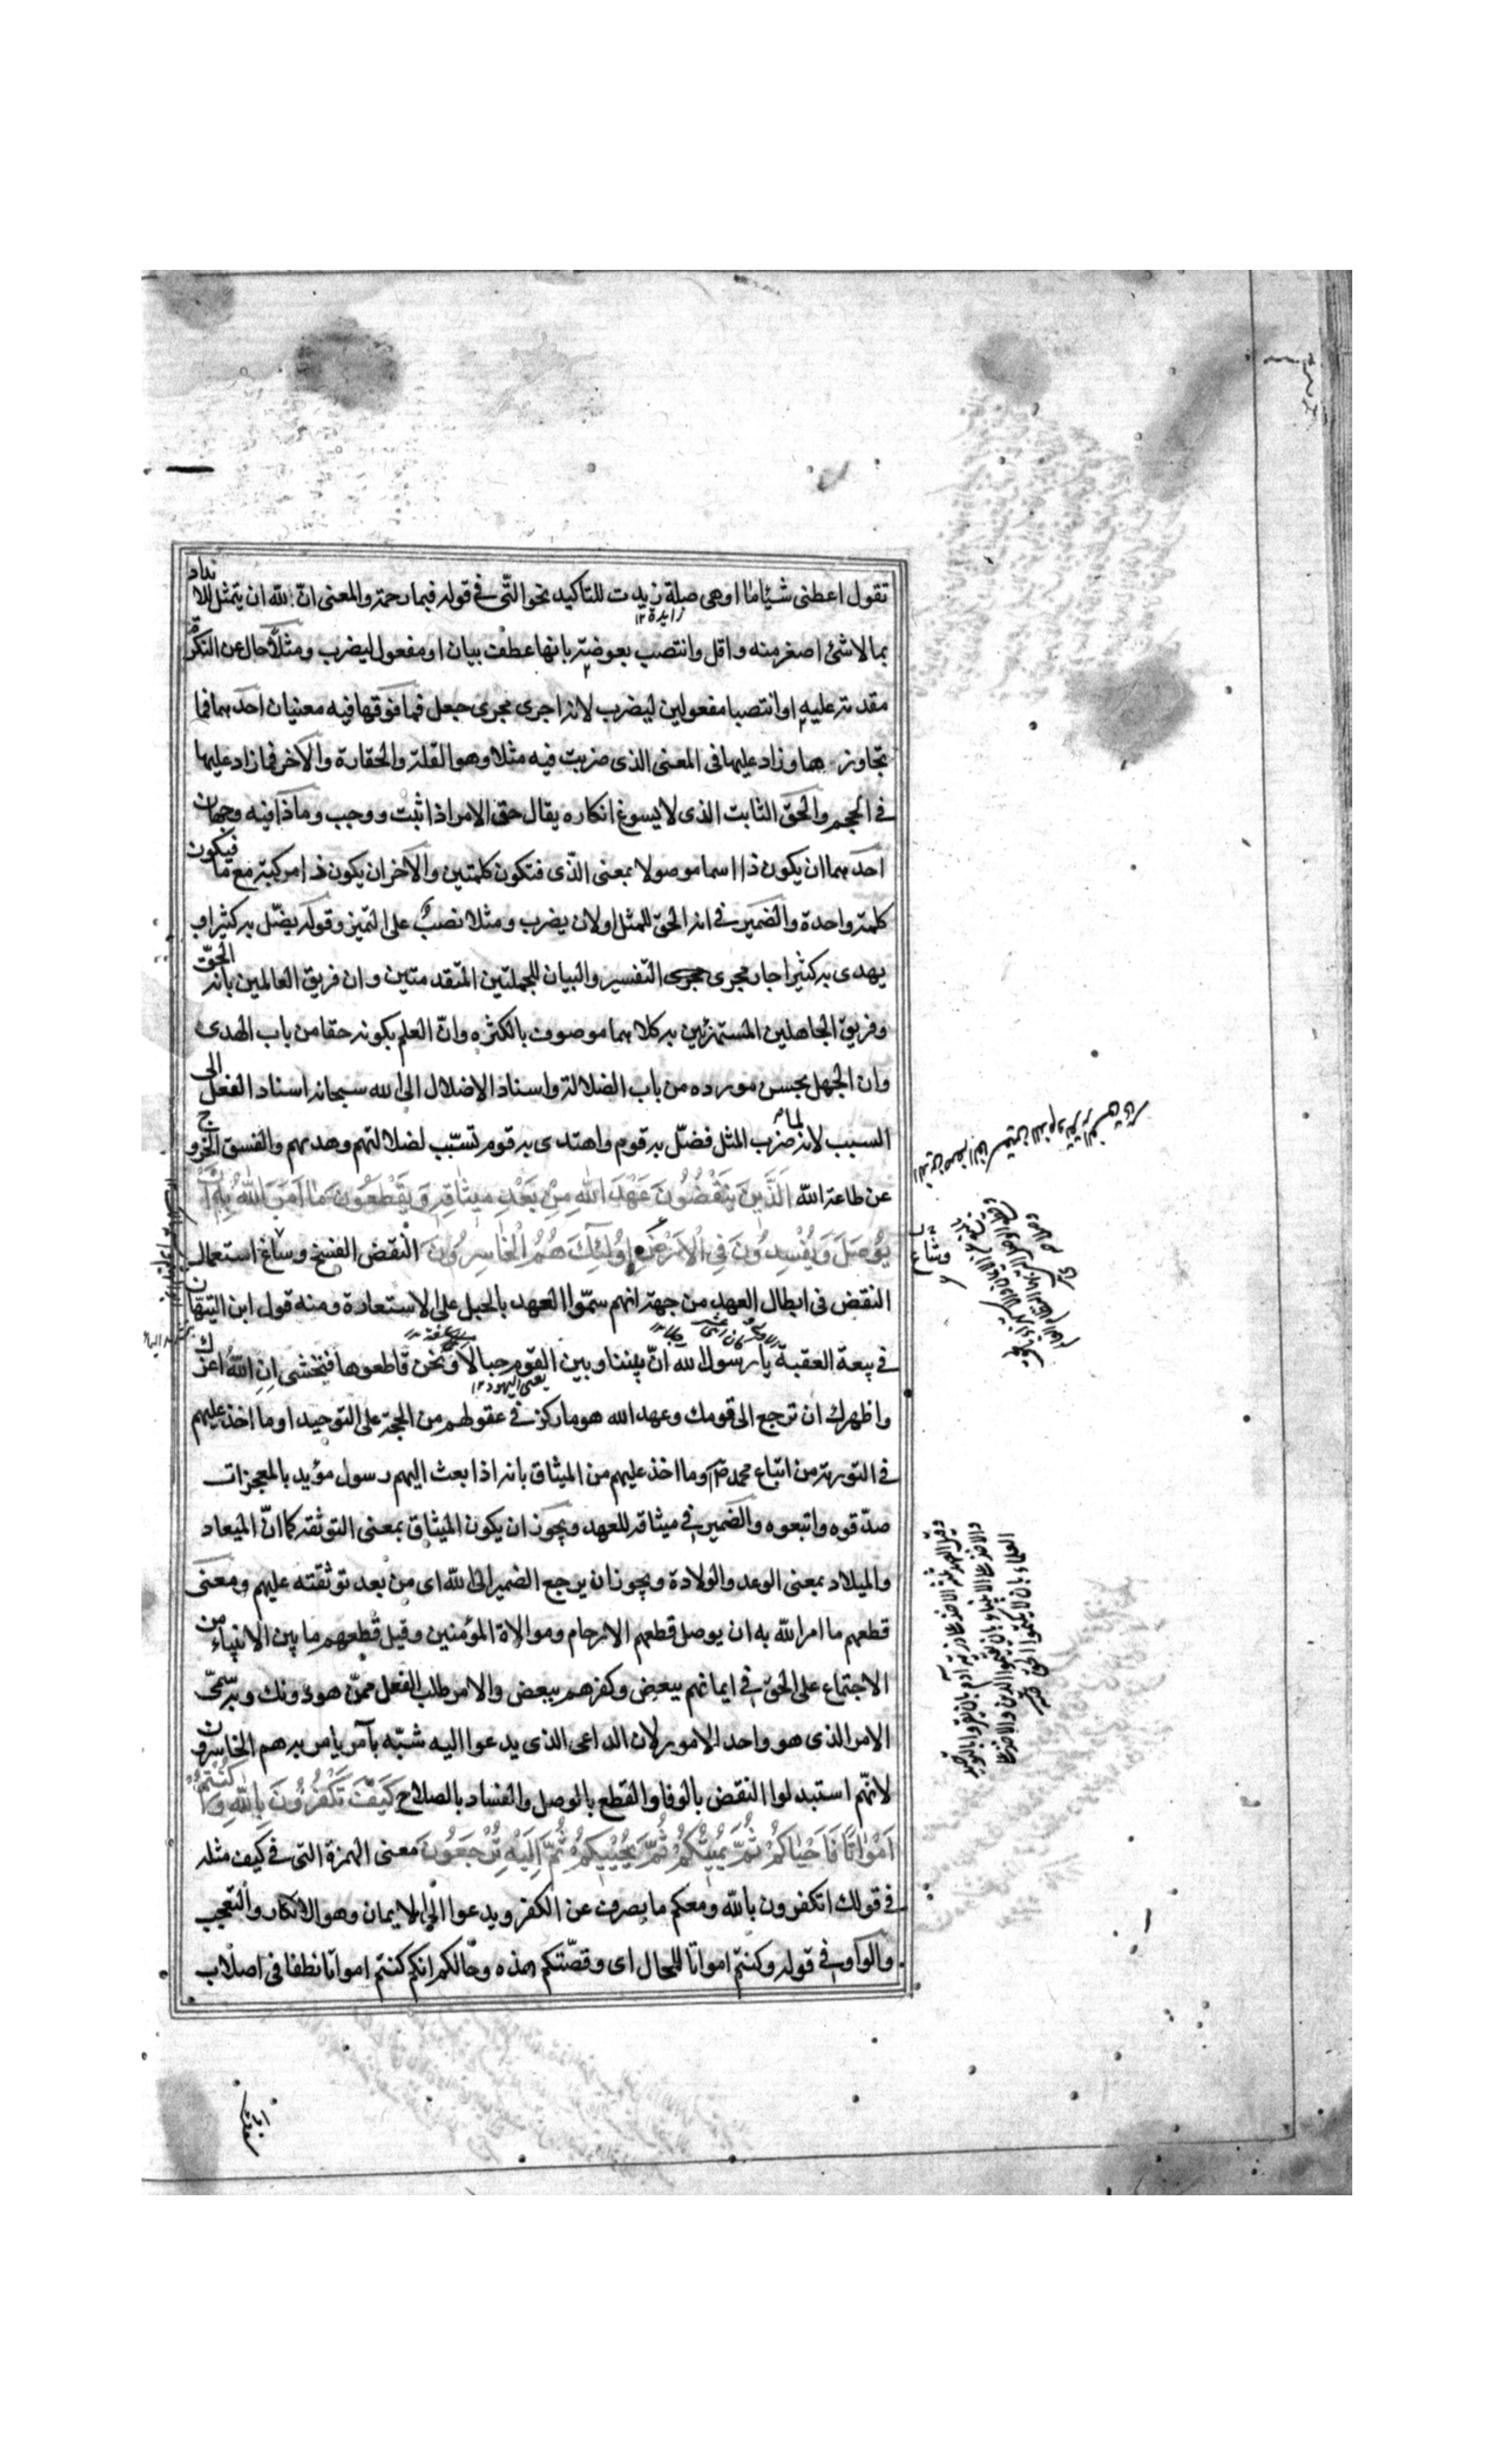 تقول اعطنى شئًا ما او هى صلة زيدت للتاكيد نحو التّى فى قوله فبما رحمة والمعنى انّ الله ان يتمثل للانداد
زايدة ١٢
بما لا شئ اصغر منه واقل وانتصب بعوضة بانها عطف بيان او مفعول ليضرب ومثلاً حال عن النكرة
مقدمة عليه او انتصبا مفعولين ليضرب لانه اجرى مجرى جعل فما فوقها فيه معنيان احدهما فما
تجاوزها وزاد عليها فى المعنى الذى ضربت فيه مثلا وهو القلة والحقارة والآخر فما زاد عليها
فى الحجم والحق الثابت الذى لا يسوغ انكاره يقال حق الامر اذا ثبت ووجب وماذا فيه وجهان
احدهما ان يكون ذا اسما موصولا بمعنى الّذى فتكون كلمتين والآخر ان يكون ذا مركبة مع ما فيكون
كلمة واحدة والضمير فى انه الحق للمثل او لان يضرب ومثلا نصبٌ على التميز وقوله يضّل به كثيرا و
يهدى به كثيرا جار مجرى التفسير والبيان للجملتين المتقدمتين وان فريق العالمين بانه الحقّ
وفريق الجاهلين المستهزئين به كلاهما موصوف بالكثره وانّ العلم بكونه حقا من باب الهدى
وان الجهل بحسن مورده من باب الضلالة واسناد الاضلال الى الله سبحانه اسناد الفعل الى
السبب لانه لما ضرب المثل فضّل به قوم واهتدى به قوم تسبّب لضلالتهم وهديهم والفسق الخروج
عن طاعة الله اَلَّذِينَ يَنْقُضُونَ عَهْدَ اللهِ مِنْ بَعْدِ مِيثَاقِهِ وَيَقْطَعُونَ مَا اَمَرَ اللهُ بِهِ اَنْ
يُوصَلَ وَيُفْسِدُونَ فِى الْاَرْضِ اُولٰئِكَ هُمُ الْخَاسِرُونَ النقض الفسخ وساغ استعمال
النقض فى ابطال العهد من جهة انهم سمّوا العهد بالحبل على الاستعارة ومنه قول ابن التيّهان
فى بيعة العقبة يا رسول الله انّ بيننا وبين القوم حبالا ونحن قاطعوها فنخشى ان الله اعزك
يعنى اليهود ١٢
واظهرك ان ترجع الى قومك وعهد الله هو ما ركز فى عقولهم من الحجة على التوحيد او ما اخذ عليهم
فى التورية من اتباع محمد ص وما اخذ عليهم من الميثاق بانه اذا بعث اليهم رسول مؤيد بالمعجزات
صدّقوه واتبعوه والضمير فى ميثاقه للعهد ويجوز ان يكون الميثاق بمعنى التوثقة كما انّ الميعاد
والميلاد بمعنى الوعد والولادة ويجوز ان يرجع الضمير الى الله اى من بعد توثقته عليهم ومعنى
قطعهم ما امر الله به ان يوصل قطعهم الارحام وموالاة المؤمنين وقيل قطعهم ما بين الانبياء من
الاجتماع على الحق فى ايمانهم ببعض وكفرهم ببعض والامر طلب الفعل ممّن هو دونك وبه سمّى
الامر الذى هو واحد الامور لان الداعى الذى يدعوا اليه شبّه بآمر يامر به هم الخاسرون
لانّهم استبدلوا النقض بالوفا والقطع بالوصل والفساد بالصلاح كَيْفَ تَكْفُرُونَ بِاللهِ وَكُنْتُمْ
اَمْوَاتًا فَاَحْيَاكُمْ ثُمَّ يُمِيتُكُمْ ثُمَّ يُحْيِيكُمْ ثُمَّ اِلَيْهِ تُرْجَعُونَ معنى الهمزة التى فى كيف مثله
فى قولك اتكفرون بالله ومعكم ما يصرف عن الكفر ويدعوا الى الايمان وهو الانكار والتعجب
والواو فى قوله وكنتم امواتا للحال اى وقصّتكم هذه وحالكم انكم كنتم امواتا نطفا فى اصلاب